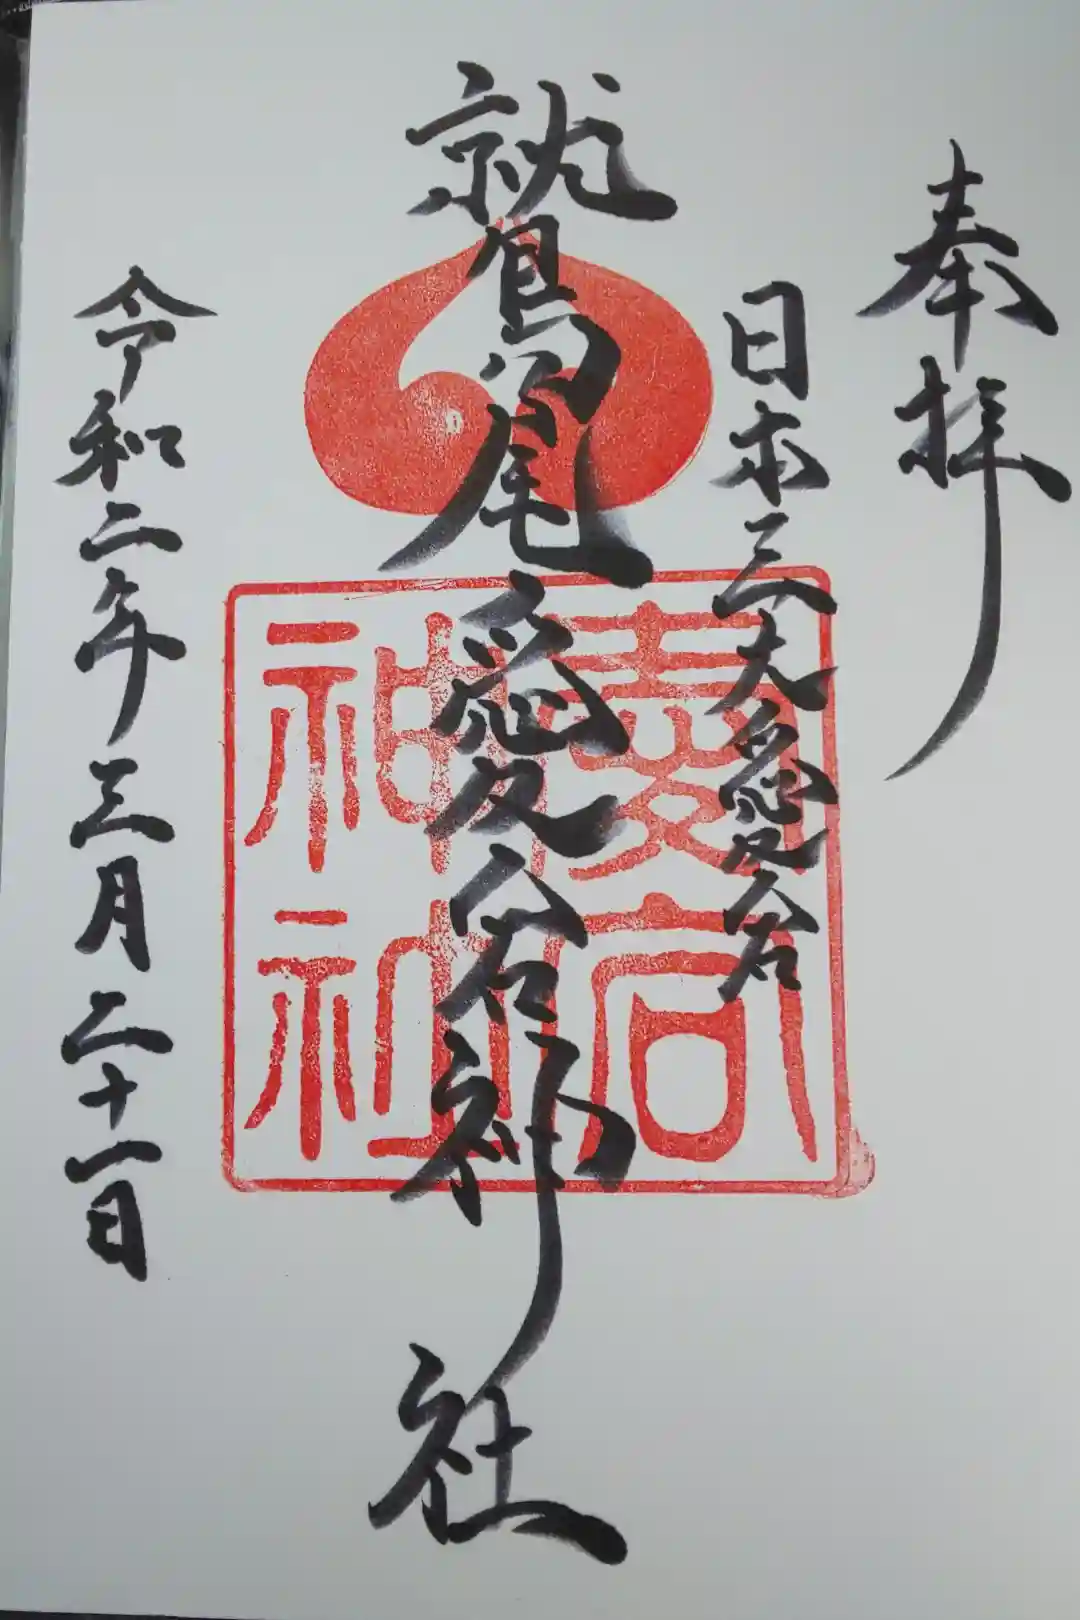 奉拝
日本三大愛宕
鷲尾愛宕神社
愛宕
神社
令和二年三月二十一日